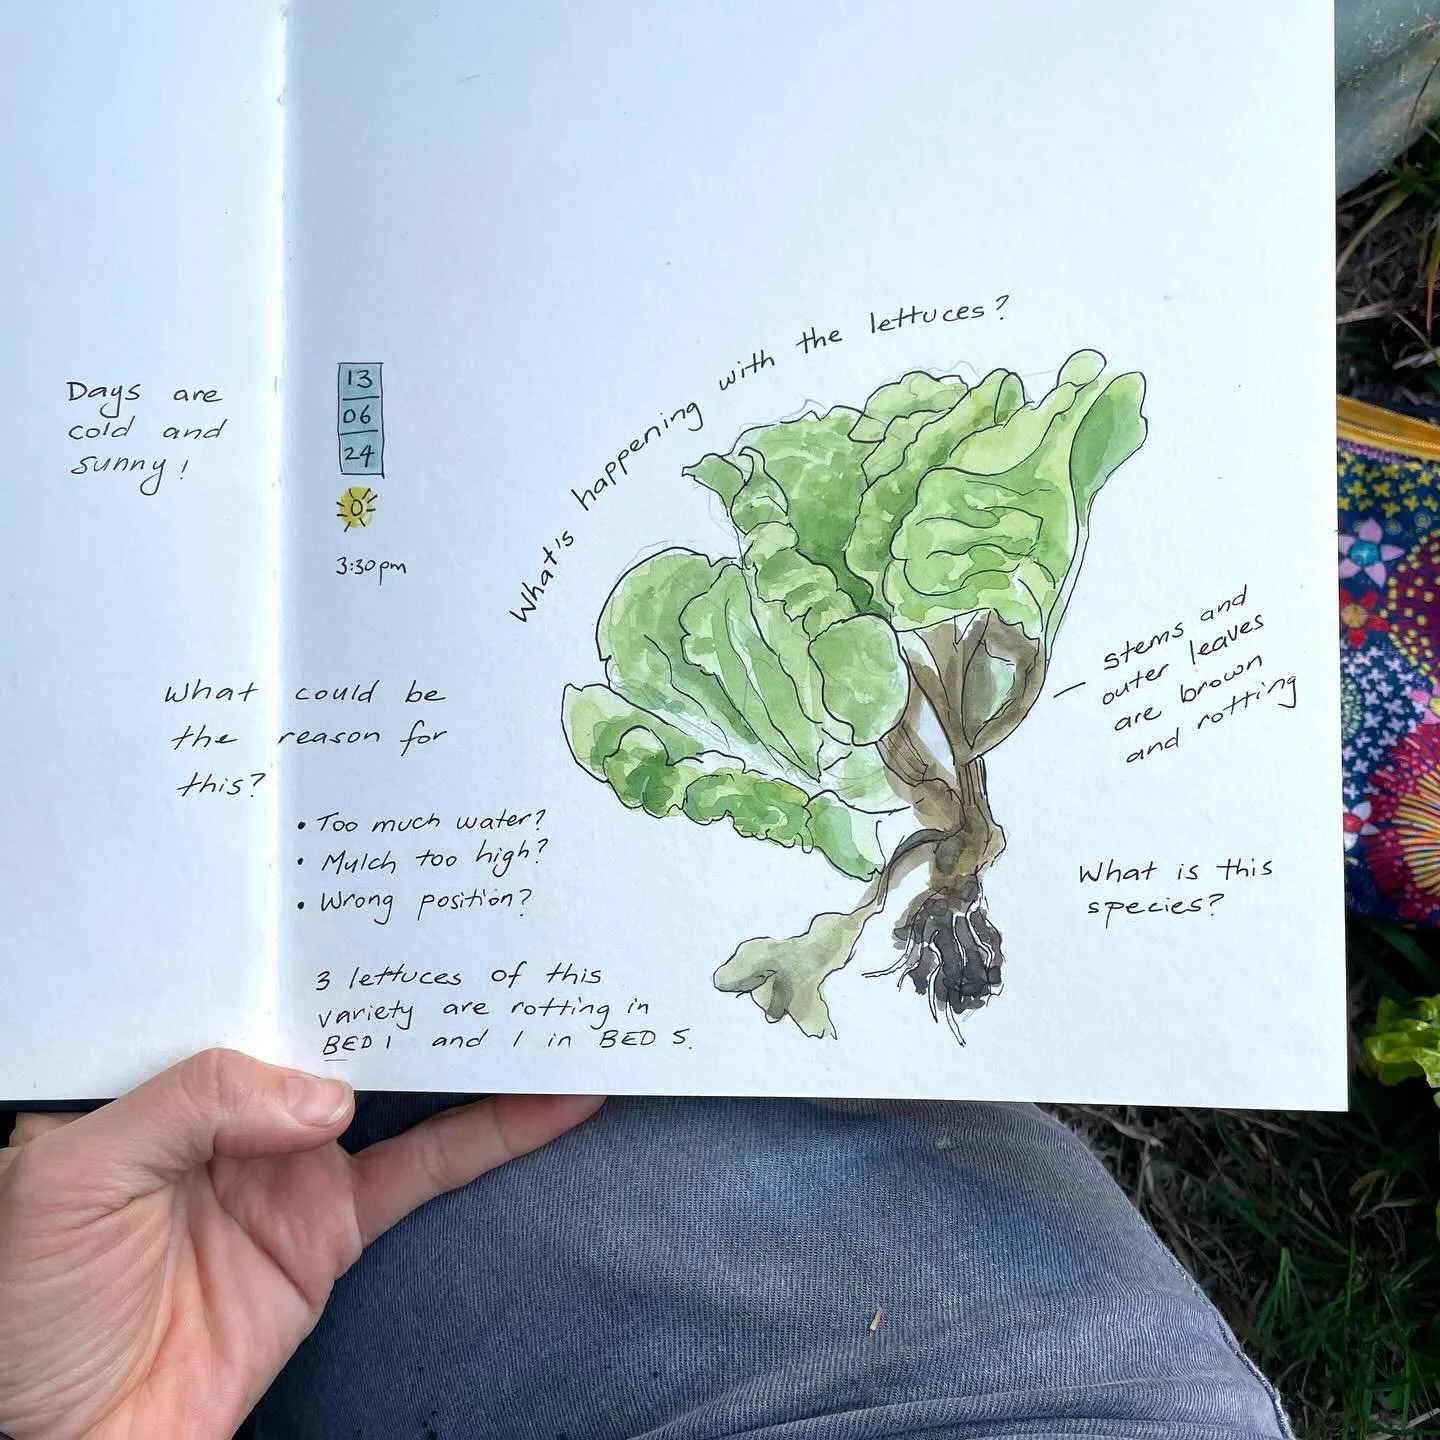 What's happening with the lettuces?
Days are
cold and
sunny!
13
06
24
3:30pm
What could be
the reason for
this?
• Too much water?
• Mulch too high?
• Wrong position?
3 lettuces of this
variety are rotting in
BED 1 and 1 in BED 5.
stems and
outer leaves
are brown
and rotting
What is this
species?